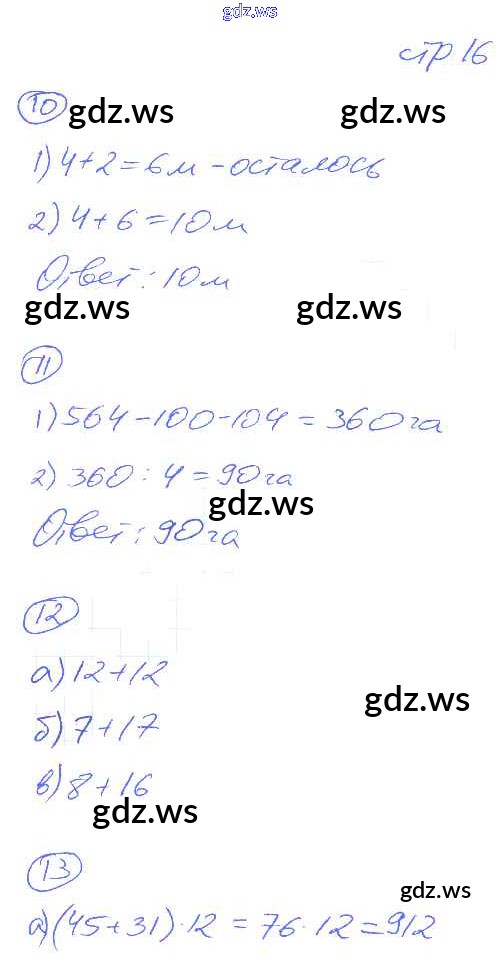 gdz.ws
стр 16
10 gdz.ws gdz.ws
1) 4+2=6м - осталось
2) 4+6=10м
Ответ: 10м
gdz.ws gdz.ws
11
1) 564-100-104=360га
2) 360:4=90га
gdz.ws
Ответ: 90га
12
а) 12+12
gdz.ws
б) 7+17
в) 8+16
gdz.ws
13
gdz.ws
а) (45+31)·12=76·12=912